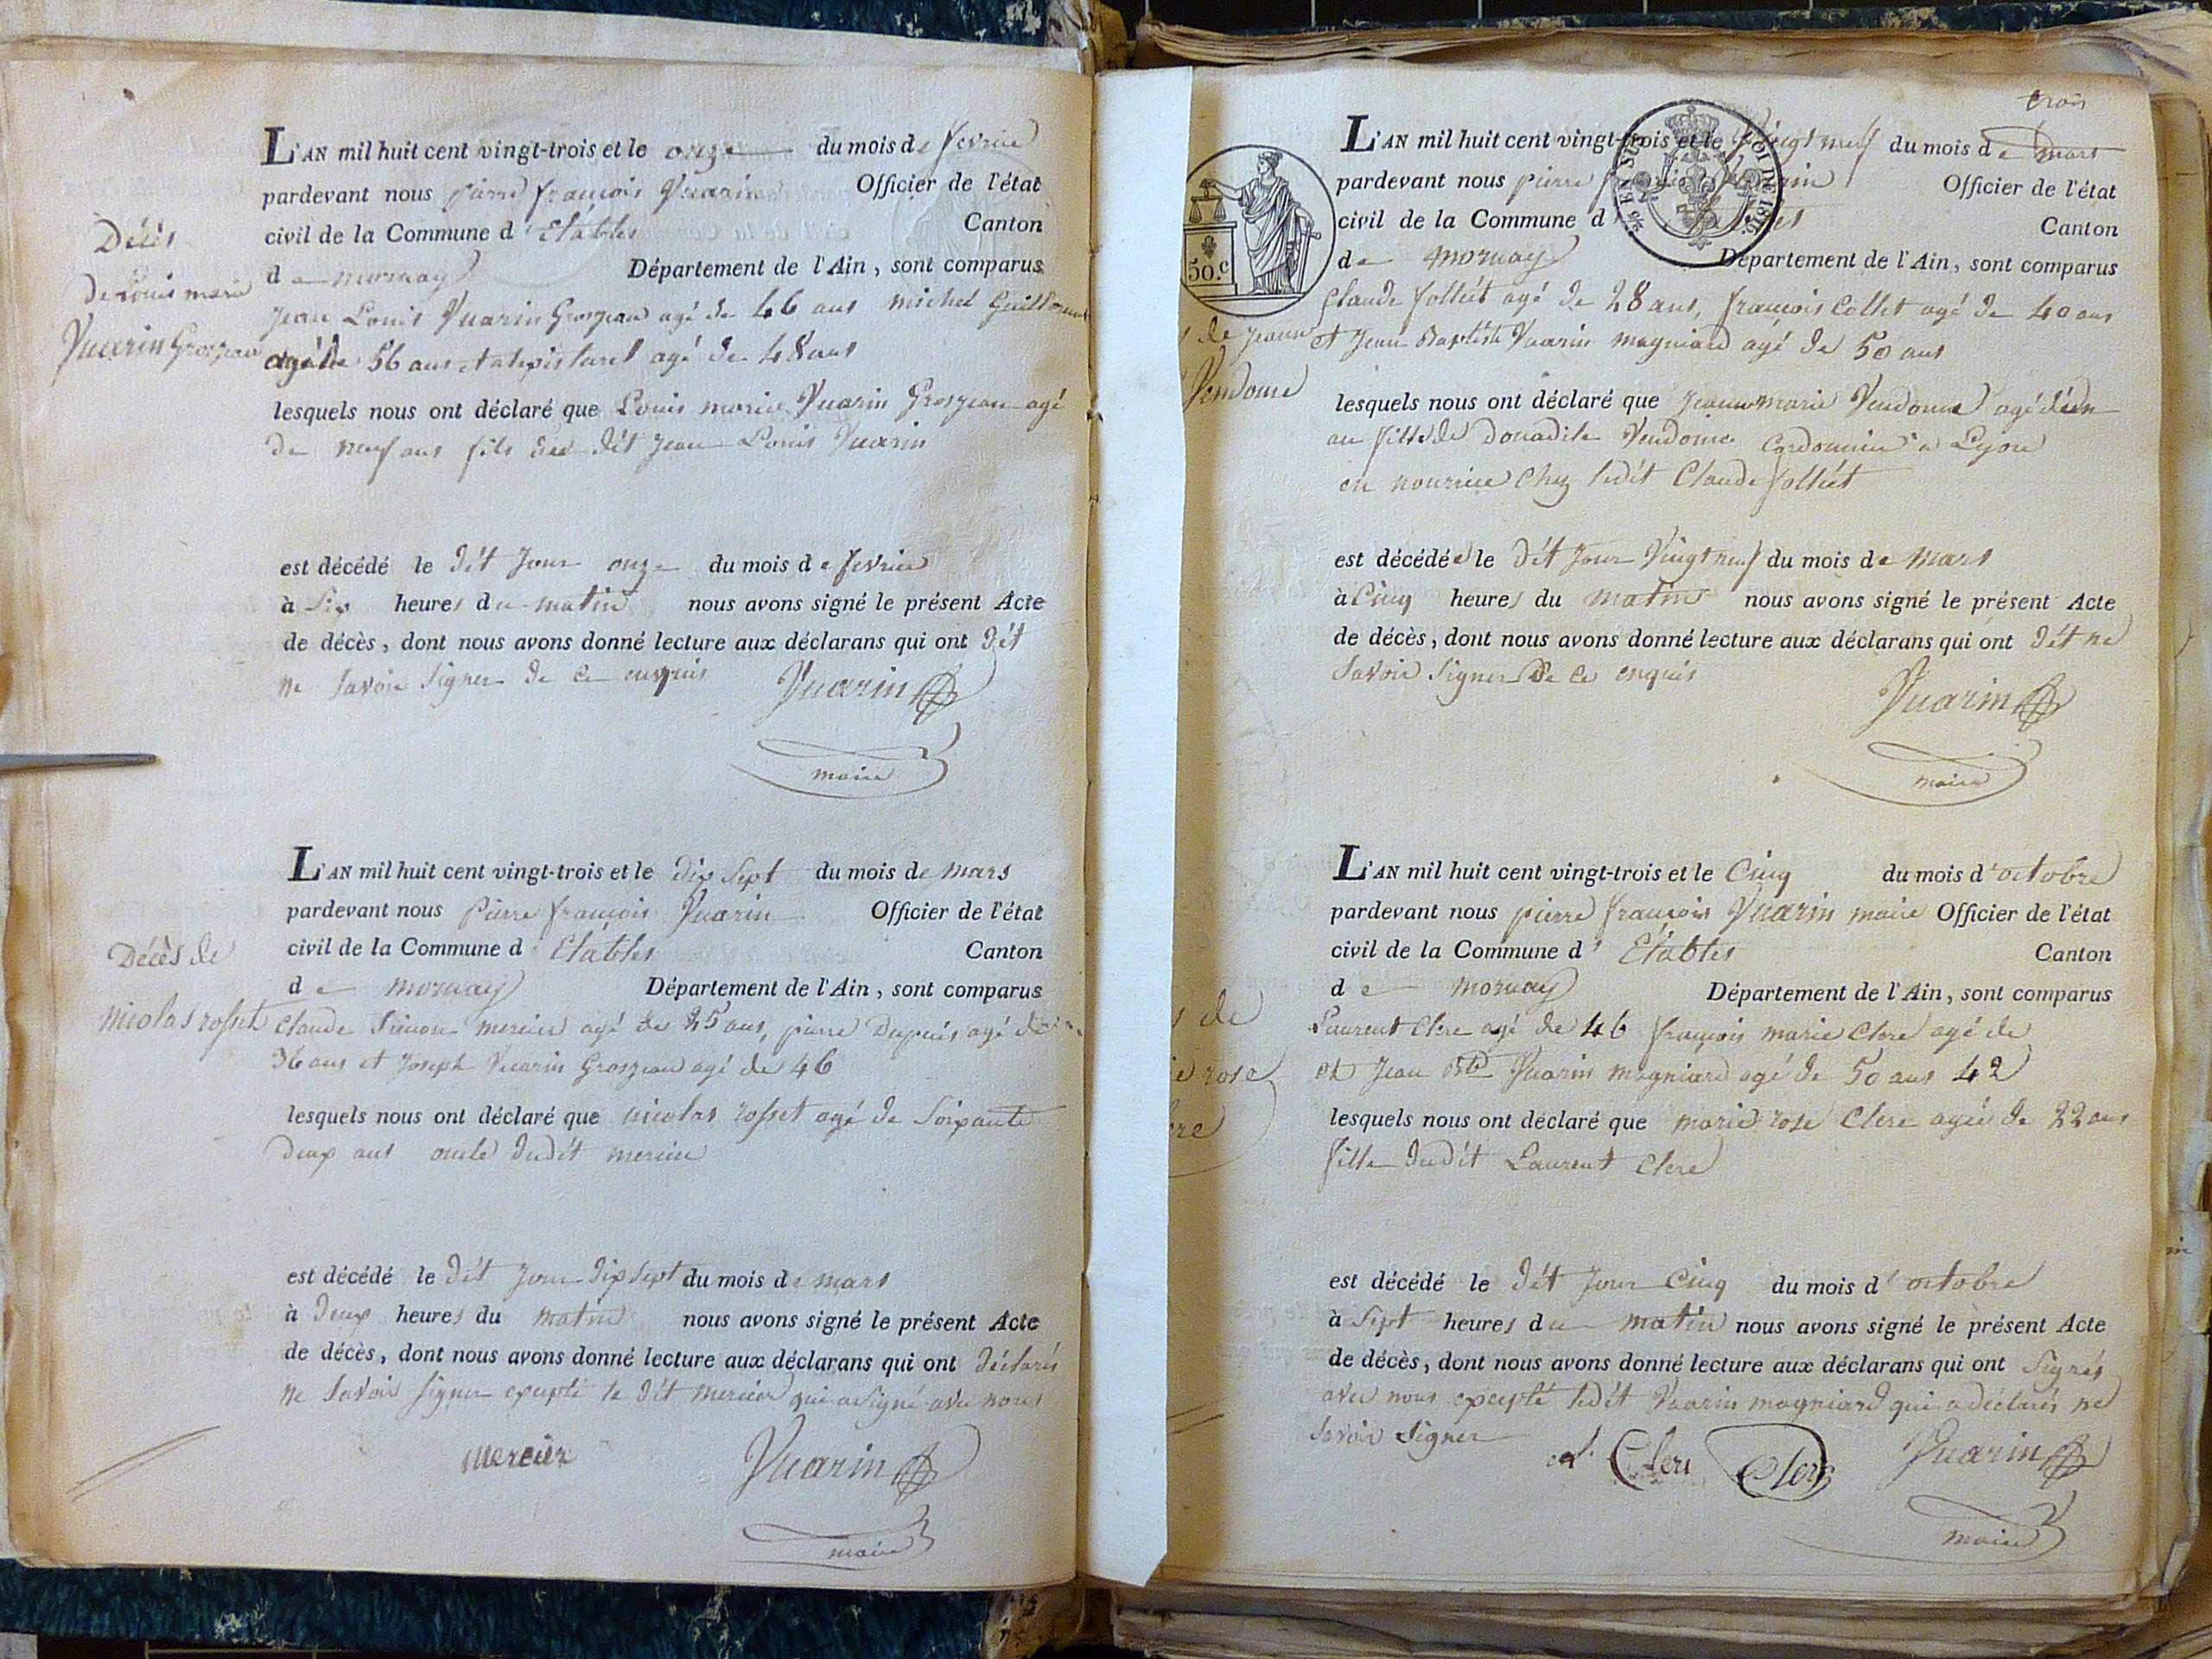 Décès
de Louis marie
Vuarin Grosjean
L'AN mil huit cent vingt-trois et le onze du mois de fevrier
pardevant nous pierre françois Vuarin Officier de l'état
civil de la Commune d'Etables Canton
de mornay Département de l'Ain, sont comparus
Jean Louis Vuarin Grosjean agé de 46 ans michel
agé de 56 ans et agé de 48 ans
lesquels nous ont déclaré que Louis marie Vuarin Grosjean agé
de neuf ans fils du dit Jean Louis Vuarin
est décédé le dit Jour onze du mois de fevrier
à Six heures du matin nous avons signé le présent Acte
de décès, dont nous avons donné lecture aux déclarans qui ont dit
ne Savoir Signer de ce enquis
Vuarin
maire
Décès de
nicolas rosset
L'AN mil huit cent vingt-trois et le dix Sept du mois de mars
pardevant nous pierre françois Vuarin Officier de l'état
civil de la Commune d'Etables Canton
de mornay Département de l'Ain, sont comparus
Claude Simon mercier agé de 25 ans, pierre Dupuis agé de
36 ans et Joseph Vuarin Grosjean agé de 46
lesquels nous ont déclaré que nicolas rosset agé de Soixante
deux ans oncle dudit mercier
est décédé le dit Jour dix Sept du mois de mars
à deux heures du matin nous avons signé le présent Acte
de décès, dont nous avons donné lecture aux déclarans qui ont déclarés
ne Savoir Signer excepté le dit mercier qui a Signé avec nous
mercier Vuarin
maire
trois
L'AN mil huit cent vingt-trois et le Vingt neuf du mois de mars
pardevant nous pierre françois Vuarin Officier de l'état
civil de la Commune d'Etables Canton
de mornay Département de l'Ain, sont comparus
50.c
Claude folliet agé de 28 ans, françois Collet agé de 40 ans
de jeanne
et Jean Baptiste Vuarin magniard agé de 50 ans
Vendome
lesquels nous ont déclaré que jeanne marie Vendome agé d'un
an fille de Vendome Cordonnier a Lyon
en nourrice Chez ledit Claude folliet
est décédée le dit Jour Vingt neuf du mois de mars
à Cinq heures du matin nous avons signé le présent Acte
de décès, dont nous avons donné lecture aux déclarans qui ont dit ne
Savoir Signer De Ce enquis
Vuarin
maire
L'AN mil huit cent vingt-trois et le Cinq du mois d'octobre
pardevant nous pierre françois Vuarin maire Officier de l'état
civil de la Commune d'Etables Canton
de mornay Département de l'Ain, sont comparus
de
Laurent Clere agé de 46 françois marie Clere agé de
rose
et Jean Bte Vuarin magniard agé de 50 ans 42
lesquels nous ont déclaré que marie rose Clere agée de 22 ans
fille dudit Laurent Clere
est décédé le dit Jour Cinq du mois d'octobre
à Sept heures du matin nous avons signé le présent Acte
de décès, dont nous avons donné lecture aux déclarans qui ont Signés
avec nous excepté ledit Vuarin magniard qui a déclarés ne
Savoir Signer
Clere Clere Vuarin
maire